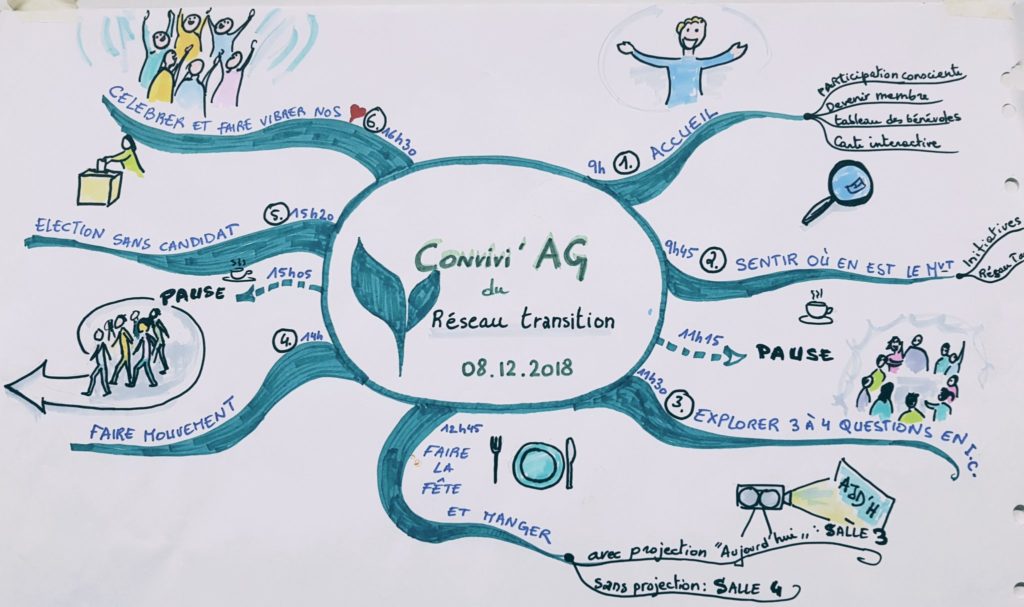 Convivi'AG
du
Réseau transition
08.12.2018
9h 1. ACCUEIL
PARTICIPATION CONSCIENTE
Devenir membre
tableau des bénévoles
Carte interactive
9h45 2. SENTIR OÙ EN EST LE MVT
Initiatives
Réseau
11h15 PAUSE
11h30 3. EXPLORER 3 À 4 QUESTIONS EN I.C.
12h45
FAIRE
LA
FÊTE
ET MANGER
AJD'H
avec projection "Aujourd'hui": SALLE 3
Sans projection: SALLE 4
4. 14h
FAIRE MOUVEMENT
15h05
PAUSE
5. 15h20
ELECTION SANS CANDIDAT
6. 16h30
CELEBRER ET FAIRE VIBRER NOS